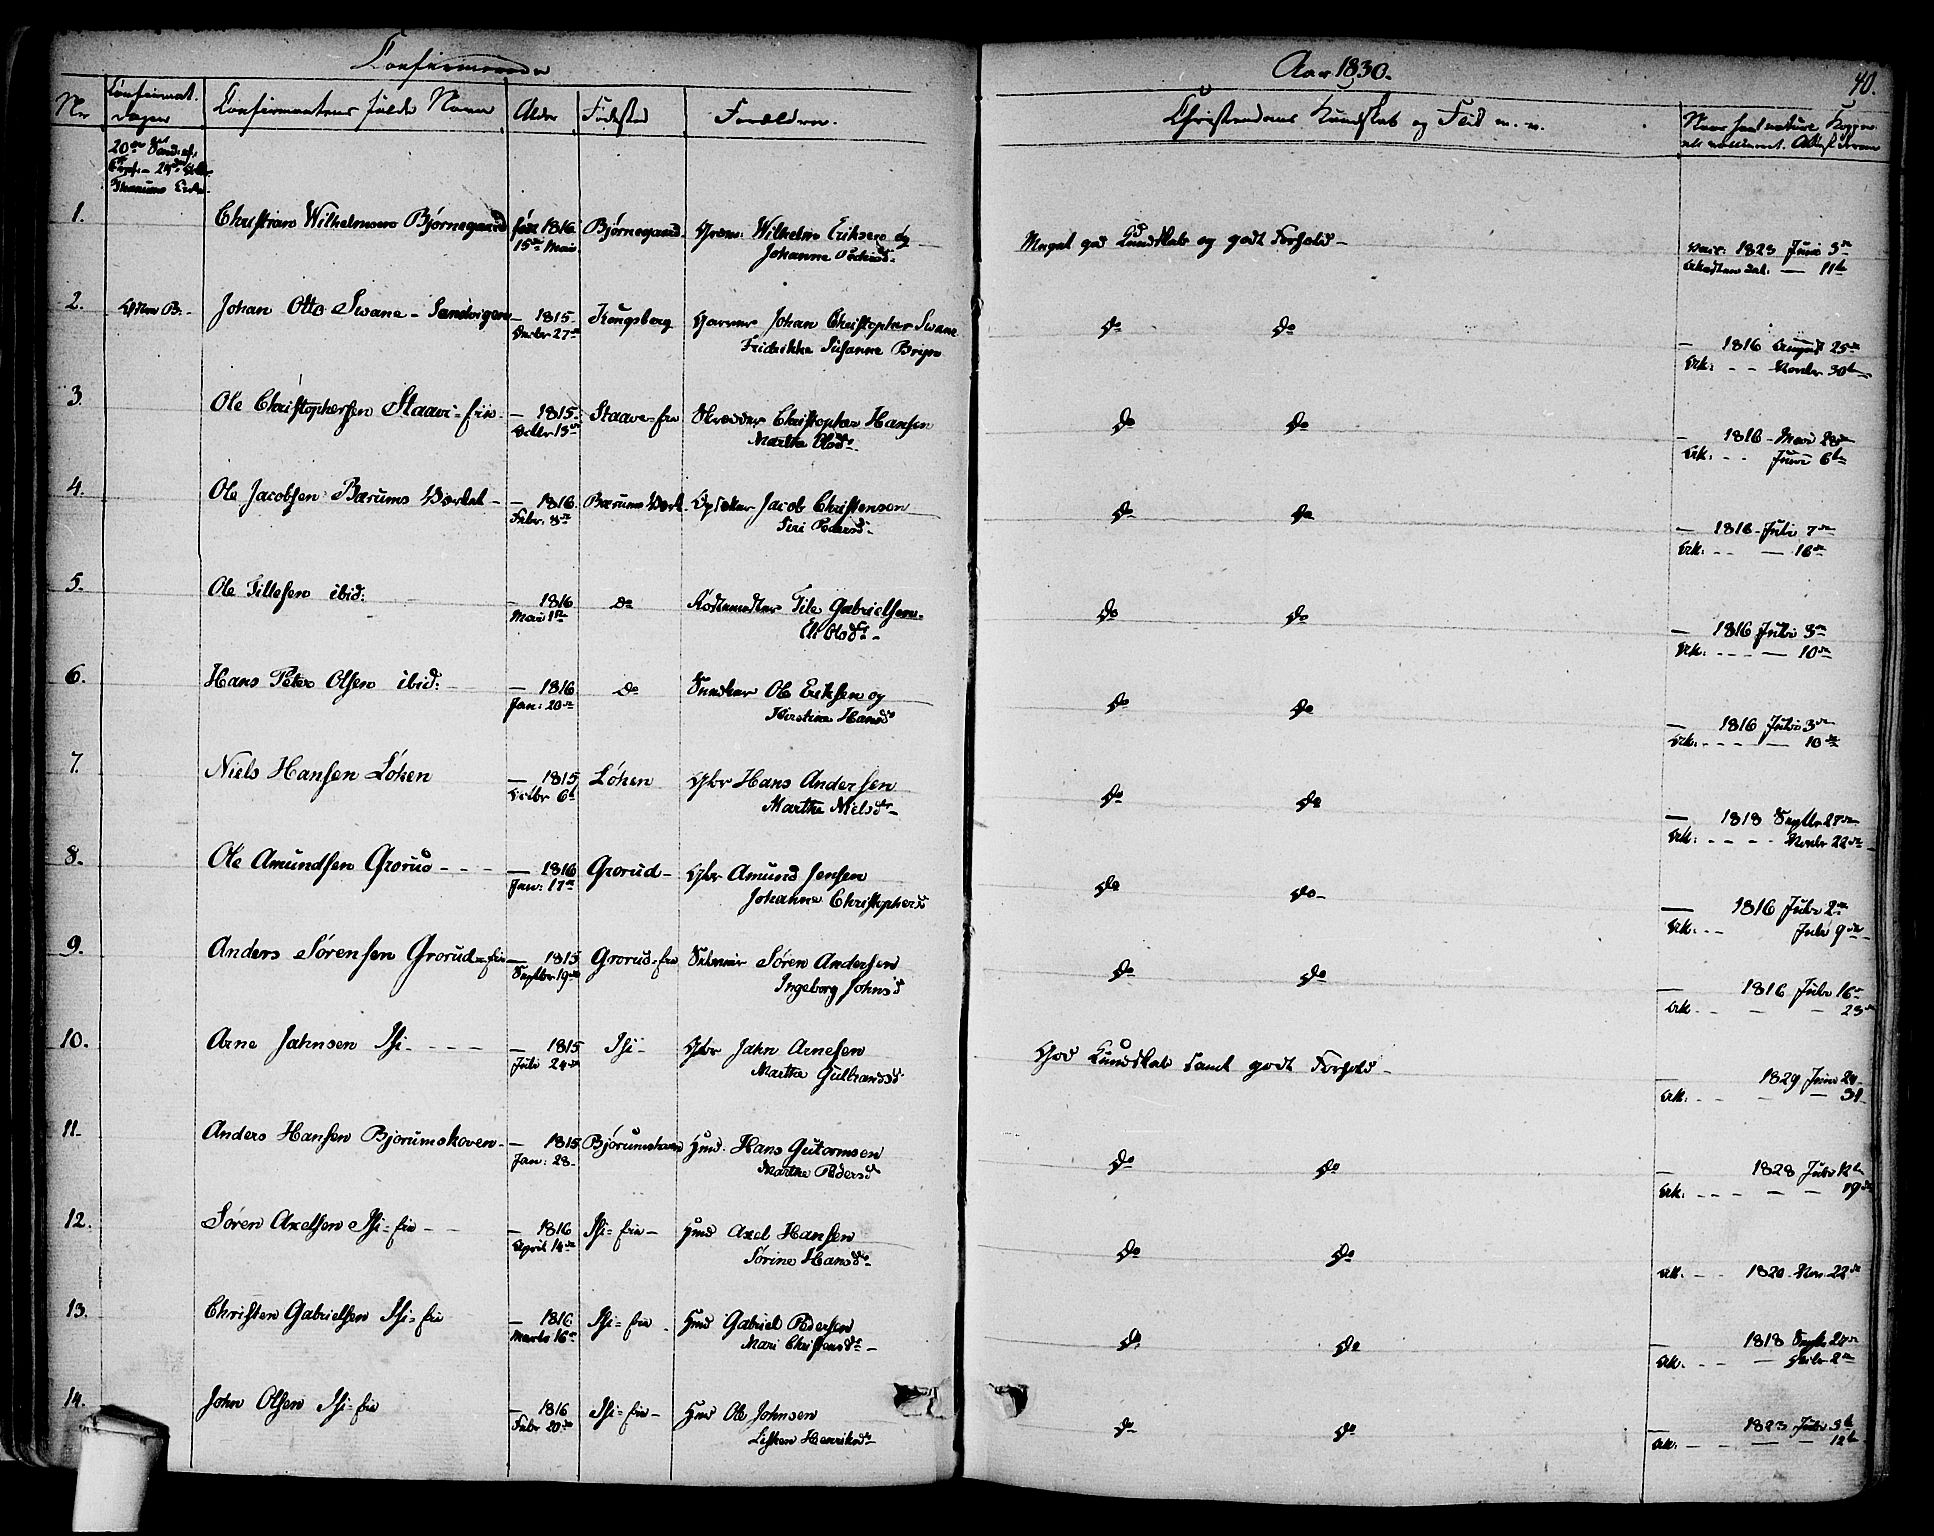 Confirmerede
Aar 1830.
40.
Nr
Confirmat. Dagen
Confirmantens fulde Navn
Alder
Fødested
Forældre.
Christendoms Kundskab og Flid m. v.
Naar havt nature Kopper
eller vaccineret.
1. Christian Wilhelmsen Bjørnegaard
født 1816. 15de Mai.
Bjørnegaard
Wilhelm Eriksen og
Johanne Peders.
Meget god Kundskab og godt Forhold
1823 Juni 3de
11te
2. Johan Otto Swane - Sandvigen
1815. Decbr 27de
Kongsberg
Garver Johan Christopher Swane
Fridrikke Susanne
Do Do
1816 August 25de
Att: Novbr 30te
3. Ole Christophersen Staavi-eie
1815. Octbr 13de
Staave-eie
Skrædder Christopher Hansen
Marthe Olsd.
Do Do
1816 - Mai 28de
Att: Juni 6te
4. Ole Jacobsen Bærums Værket
1816. Febr. 8de
Bærums Værk
Jacob Christensen
Siri Pedersd.
Do Do
1816 - Juli 7de
Att: 16de
5. Ole Tillesen ibid:
1816 Mai 1ste
Do
Tile Gabrielsen.
Eli Olsd.
Do Do
1816 Juli 3de
Att: 10de
6. Hans Peter Olsen ibid:
1816 Jan: 20de
Do
Snedker Ole Eriksen og
Kirstine Hansd.
Do Do
1816 Juli 3de
Att: 10de
7. Niels Hansen Løken
1815 Octbr 6te
Løken
Gbr Hans Andersen
Marthe Nielsd.
Do Do
1818 Septbr 27de
Att: Novbr 22de
8. Ole Amundsen Grorud
1816 Jan: 17de
Grorud
Gbr Amund Jensen
Johanne Christophersd
Do Do
1816 Juli 2de
Att: Juli 9de
9. Anders Sørensen Grorud-eie
1815 Septbr 19de
Grorud-eie
Søren Andersen
Ingeborg Johnsd
Do Do
1816 Juli 16de
Att. 23de
10. Arne Jahnsen Isi
1815 Juli 24de
Isi
Gbr Jahn Arnesen
Marthe Gulbrandsd
God Kundskab samt godt Forhold
1829 Juni 24
Att: 31
11. Anders Hansen Bjørumskoven
1815 Jan: 28
Bjørumskoven
Hmd. Hans Guttormsen
Marthe Pedersd
Do Do
1828 Juli 12te
Att. 19de
12. Søren Axelsen Isi-eie
1816 April 14de
Isi-eie
Hmd Axel Hansen
Sørine Hansd.
Do Do
Att. 1820 Nov. 22de
13. Christen Gabrielsen Isi-eie
1816 Marts 16de
Isi-eie
Hmd Gabriel Pedersen
Mari Christensd.
Do Do
1818 Septbr 27de
Att. 2de
14. John Olsen Isi-eie
1816 Febr 20de
Isi-eie
Hmd Ole Johnsen
Lisken Henriksd.
Do Do
1823 Juli 5te
Att: 12te